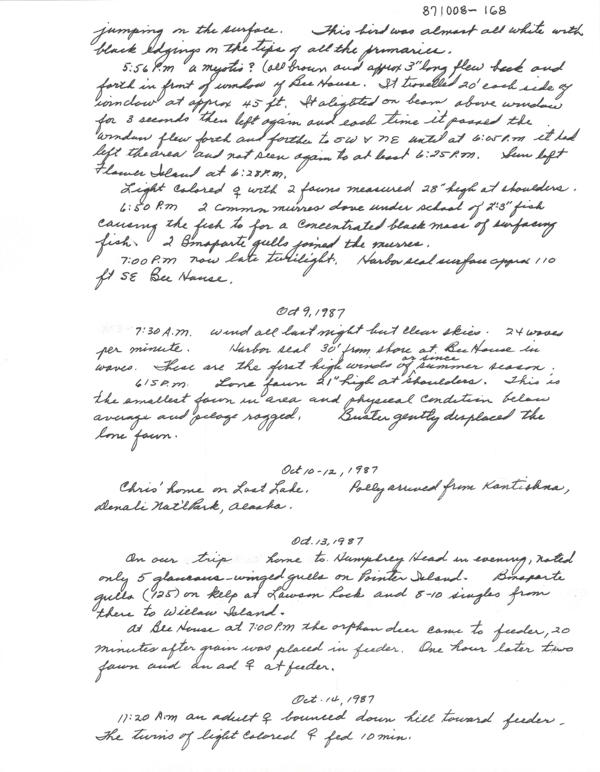 871008-168
jumping on the surface. This bird was almost all white with
black edgings on the tips of all the primaries.
5:56 P.M a myotis? (all brown and approx 3" long flew back and
forth in front of window of Bee House. It travelled 20' each side of
window at approx 45 ft. It alighted on beam above window
for 3 seconds then left again and each time it passed the
window flew forth and further to SW & NE until at 6:05 P.M it had
left the area and not seen again to at least 6:25 P.M. Sun left
Flower Island at 6:28 P.M.
Light colored ♀ with 2 fawns measured 28" high at shoulders.
6:50 P.M 2 common murres dove under school of 2"-3" fish
causing the fish to for a concentrated black mass of surfacing
fish. 2 Bonaparte gulls joined the murres.
7:00 P.M now late twilight. Harbor seal surface approx 110
ft SE Bee House.
Oct 9, 1987
7:30 A.M. wind all last night but clear skies. 24 waves
per minute. Harbor seal 30' from shore at Bee House in
waves. These are the first high winds of or since summer season.
6:15 P.M. Lone fawn 21" high at shoulders. This is
the smallest fawn in area and physical condition below
average and pelage ragged. Buster gently displaced the
lone fawn.
Oct 10-12, 1987
Chris' home on Lost Lake. Polly arrived from Kantishna,
Denali Nat'l Park, Alaska.
Oct. 13, 1987
On our trip home to Humphrey Head in evening, noted
only 5 glaucous-winged gulls on Pointer Island. Bonaparte
gulls (125) on kelp at Lawson Rock and 8-10 singles from
there to Willow Island.
At Bee House at 7:00 P.M the orphan deer came to feeder, 20
minutes after grain was placed in feeder. One hour later two
fawn and an ad ♀ at feeder.
Oct. 14, 1987
11:20 A.m an adult ♀ bounced down hill toward feeder.
The twins of light colored ♀ fed 10 min.